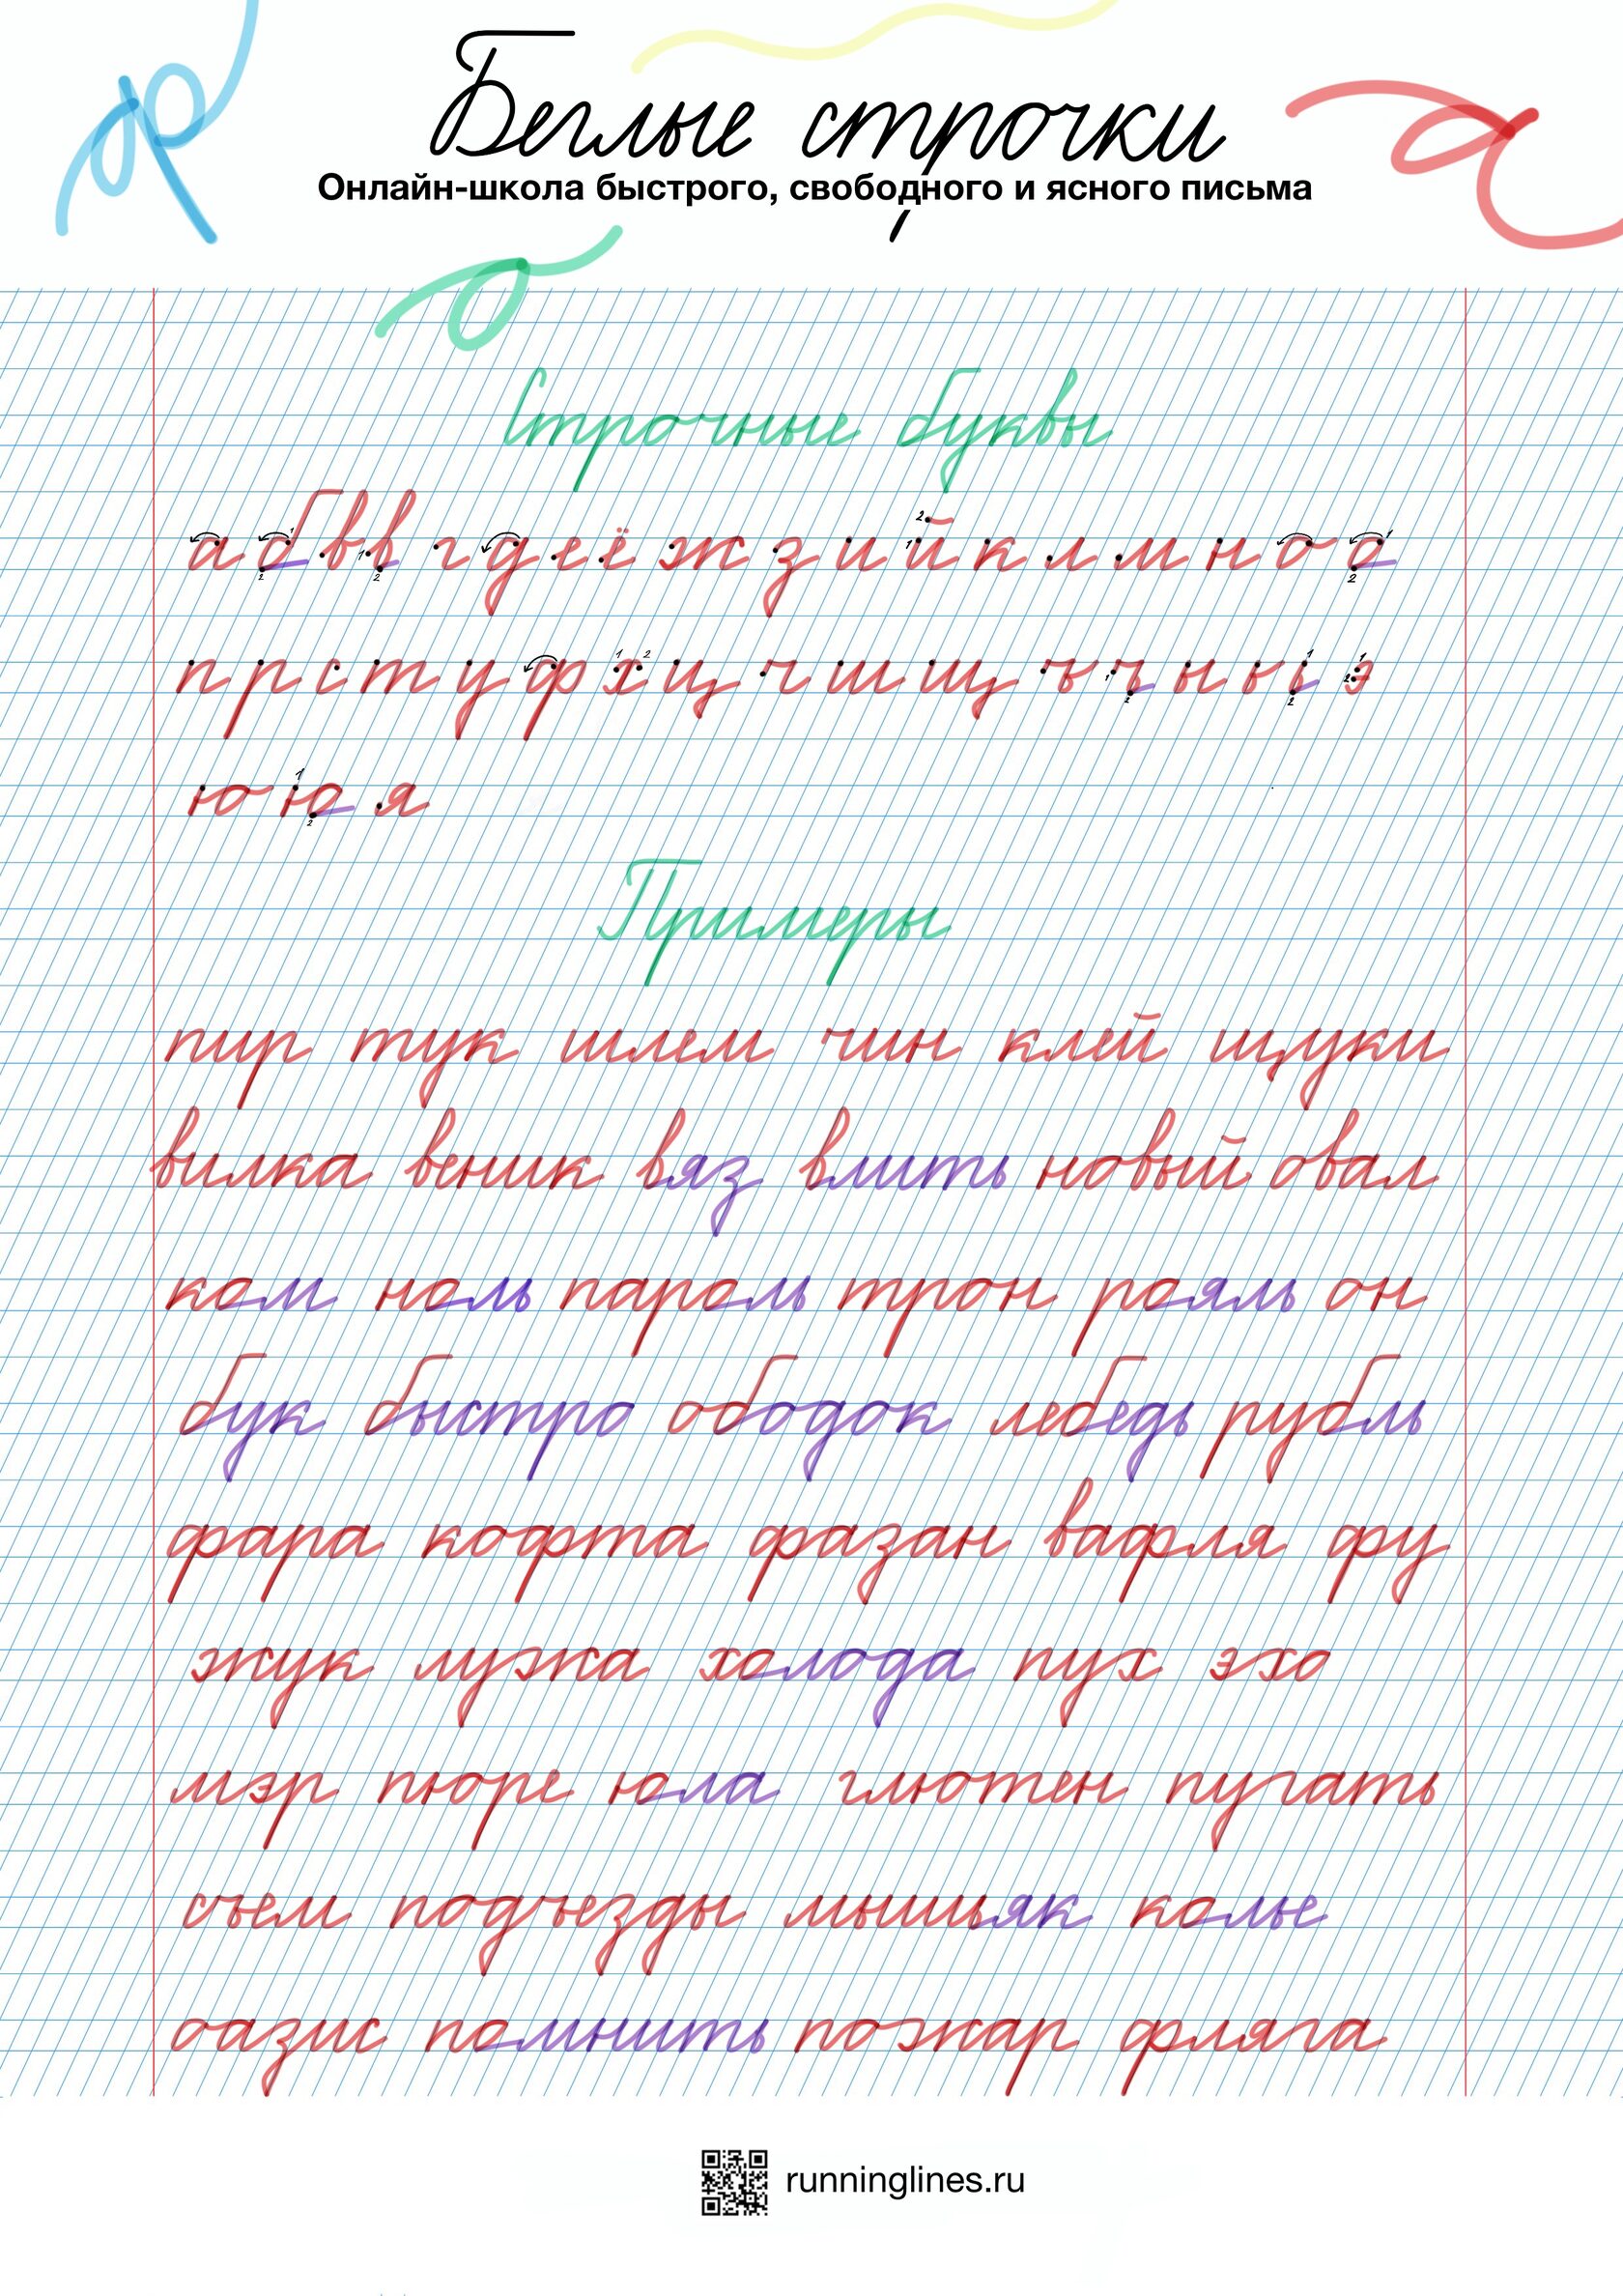 Беглые строчки
Онлайн-школа быстрого, свободного и ясного письма
Строчные буквы
а б в в г д е ё ж з и й к л м н о о
п р с т у ф х ц ч ш щ ъ ъ ы ь ь э
ю ю я
Примеры
пир тук шлем чин клей щуки
вилка веник вяз влить новый овал
ком ноль пароль трон рояль он
бук быстро ободок лебедь рубль
фара кофта фазан вафля фу
жук лужа холода пух эхо
мэр пюре юла глютен пугать
съем подъезды мышьяк колье
оазис помнить пожар фляга
runninglines.ru